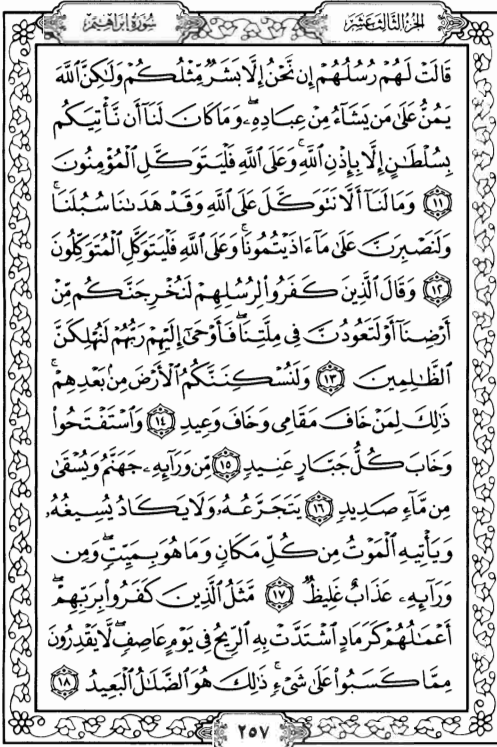 الجزء الثالث عشر
سورة إبراهيم
قَالَتْ لَهُمْ رُسُلُهُمْ إِن نَّحْنُ إِلَّا بَشَرٌ مِّثْلُكُمْ وَلَٰكِنَّ ٱللَّهَ
يَمُنُّ عَلَىٰ مَن يَشَآءُ مِنْ عِبَادِهِۦ ۖ وَمَا كَانَ لَنَآ أَن نَّأْتِيَكُم
بِسُلْطَٰنٍ إِلَّا بِإِذْنِ ٱللَّهِ ۚ وَعَلَى ٱللَّهِ فَلْيَتَوَكَّلِ ٱلْمُؤْمِنُونَ
﴿١١﴾ وَمَا لَنَآ أَلَّا نَتَوَكَّلَ عَلَى ٱللَّهِ وَقَدْ هَدَىٰنَا سُبُلَنَا ۚ
وَلَنَصْبِرَنَّ عَلَىٰ مَآ ءَاذَيْتُمُونَا ۚ وَعَلَى ٱللَّهِ فَلْيَتَوَكَّلِ ٱلْمُتَوَكِّلُونَ
﴿١٢﴾ وَقَالَ ٱلَّذِينَ كَفَرُوا۟ لِرُسُلِهِمْ لَنُخْرِجَنَّكُم مِّنْ
أَرْضِنَآ أَوْ لَتَعُودُنَّ فِى مِلَّتِنَا ۖ فَأَوْحَىٰٓ إِلَيْهِمْ رَبُّهُمْ لَنُهْلِكَنَّ
ٱلظَّٰلِمِينَ ﴿١٣﴾ وَلَنُسْكِنَنَّكُمُ ٱلْأَرْضَ مِنۢ بَعْدِهِمْ ۚ
ذَٰلِكَ لِمَنْ خَافَ مَقَامِى وَخَافَ وَعِيدِ ﴿١٤﴾ وَٱسْتَفْتَحُوا۟
وَخَابَ كُلُّ جَبَّارٍ عَنِيدٍ ﴿١٥﴾ مِّن وَرَآئِهِۦ جَهَنَّمُ وَيُسْقَىٰ
مِن مَّآءٍ صَدِيدٍ ﴿١٦﴾ يَتَجَرَّعُهُۥ وَلَا يَكَادُ يُسِيغُهُۥ
وَيَأْتِيهِ ٱلْمَوْتُ مِن كُلِّ مَكَانٍ وَمَا هُوَ بِمَيِّتٍ ۖ وَمِن
وَرَآئِهِۦ عَذَابٌ غَلِيظٌ ﴿١٧﴾ مَّثَلُ ٱلَّذِينَ كَفَرُوا۟ بِرَبِّهِمْ ۖ
أَعْمَٰلُهُمْ كَرَمَادٍ ٱشْتَدَّتْ بِهِ ٱلرِّيحُ فِى يَوْمٍ عَاصِفٍ ۖ لَّا يَقْدِرُونَ
مِمَّا كَسَبُوا۟ عَلَىٰ شَىْءٍ ۚ ذَٰلِكَ هُوَ ٱلضَّلَٰلُ ٱلْبَعِيدُ ﴿١٨﴾
٢٥٧